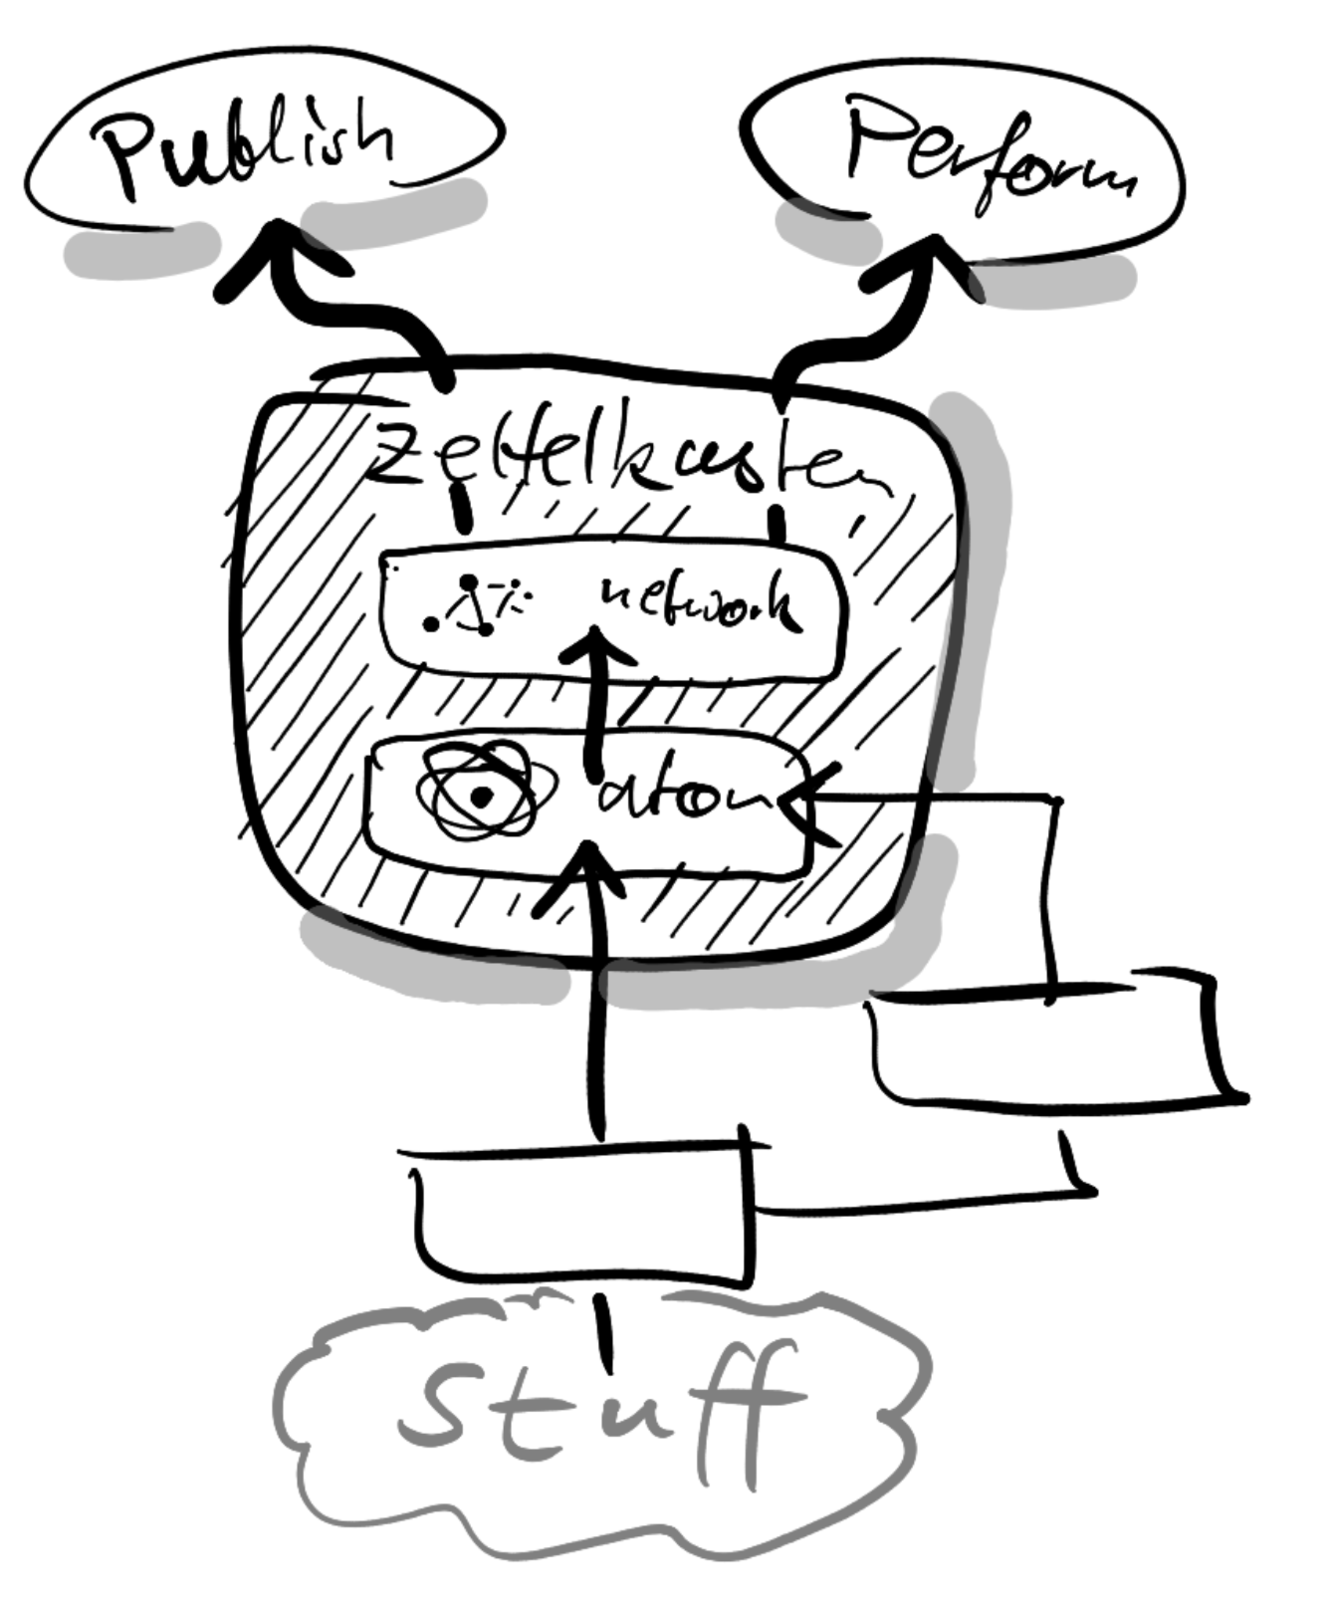 Publish
Perform
Zettelkasten
network
atom
Stuff